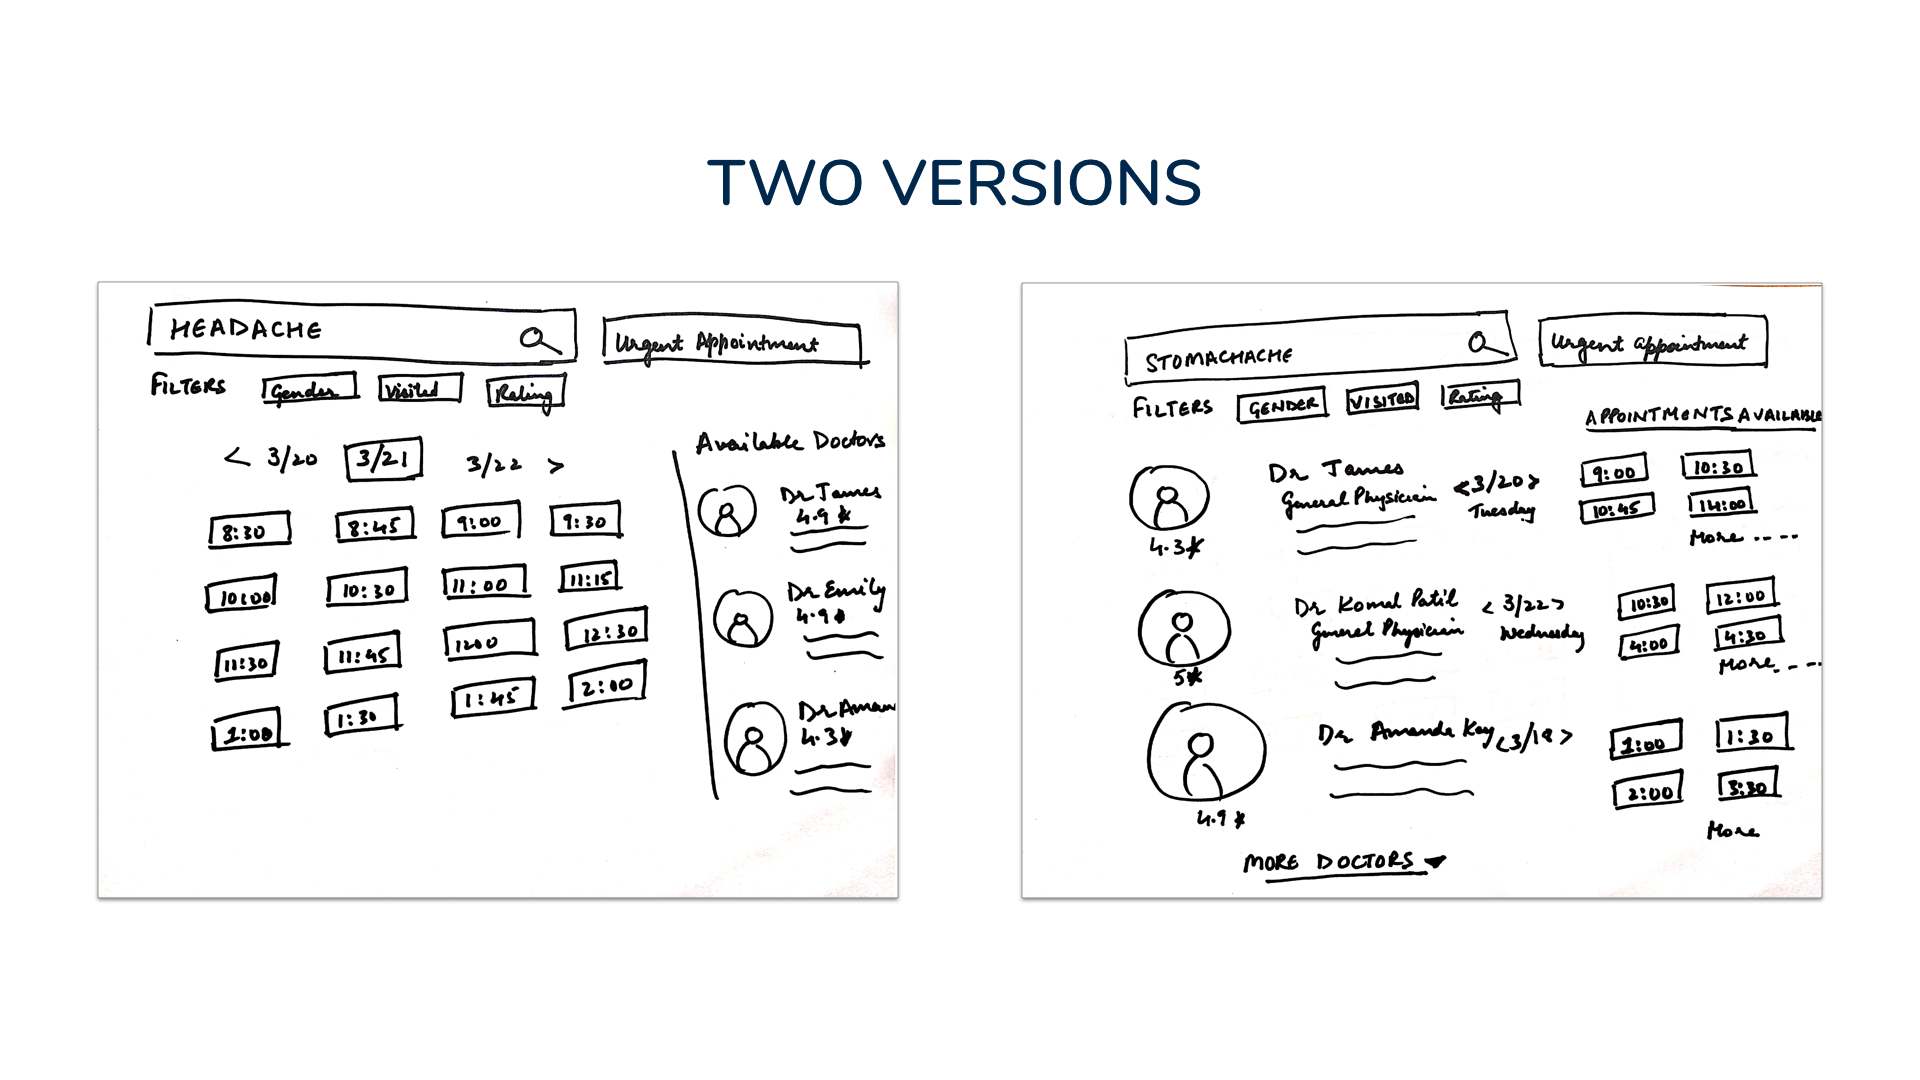 TWO VERSIONS
HEADACHE
Urgent Appointment
FILTERS Gender Visited Rating
< 3/20 3/21 3/22 >
8:30 8:45 9:00 9:30
10:00 10:30 11:00 11:15
11:30 11:45 1200 12:30
1:00 1:30 1:45 2:00
Available Doctors
Dr James
4.9 *
Dr Emily
4.9 *
Dr Aman
4.3 *
STOMACHACHE
Urgent appointment
FILTERS GENDER VISITED Rating
APPOINTMENTS AVAILABLE
Dr James
General Physician
4.3 *
<3/20>
Tuesday
9:00 10:30
10:45 14:00
More ....
Dr Komal Patil
General Physician
5 *
< 3/22 >
Wednesday
10:30 12:00
4:00 4:30
More - - -
Dr Amanda Kay
4.9 *
<3/18 >
1:00 1:30
2:00 3:30
More
MORE DOCTORS